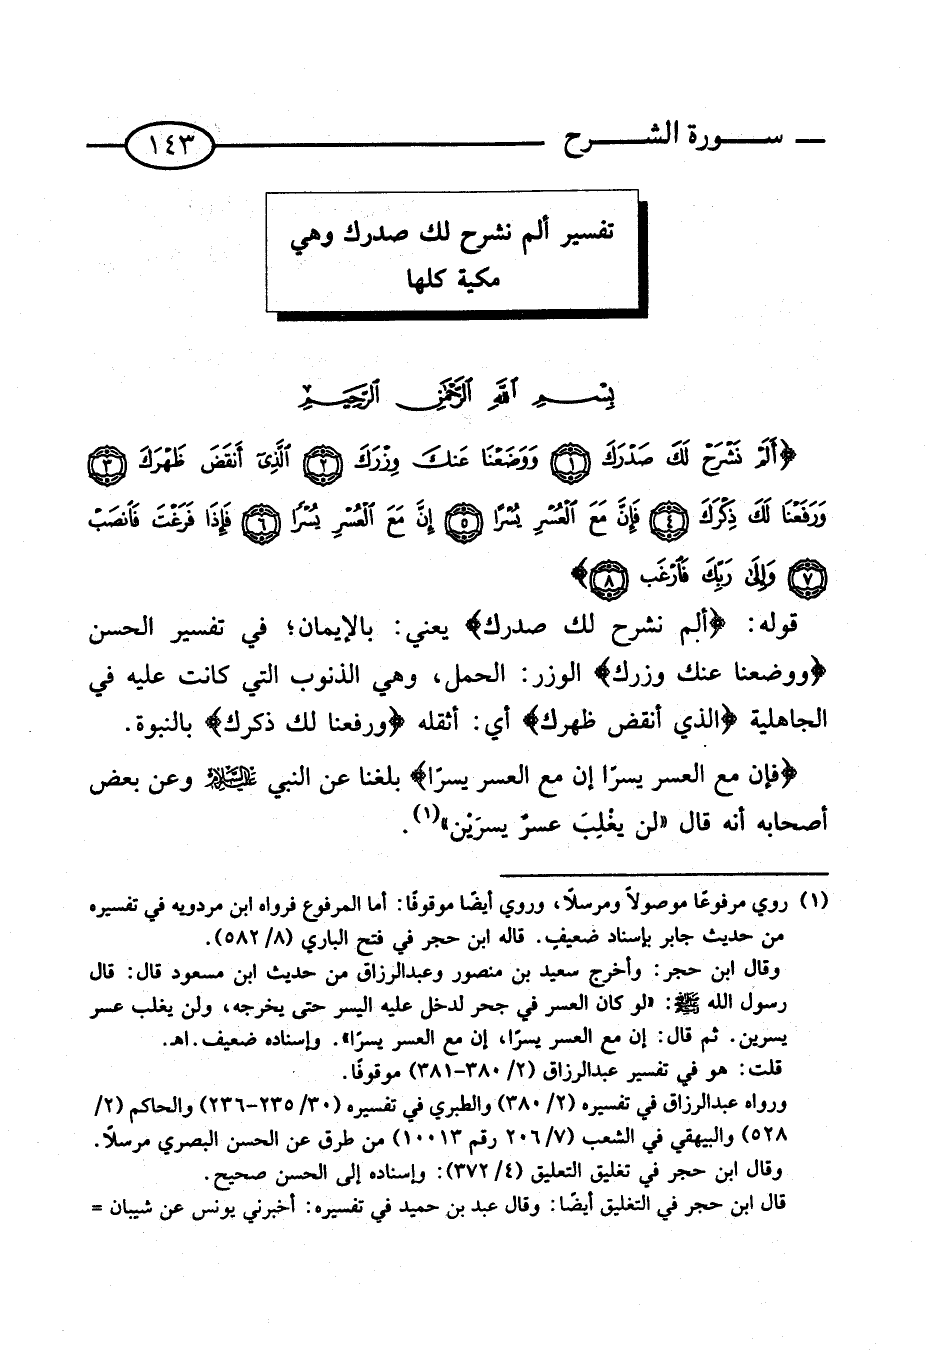 سورة الشرح
١٤٣
تفسير ألم نشرح لك صدرك وهي
مكية كلها
بِسْمِ اللَّهِ الرَّحْمَٰنِ الرَّحِيمِ
﴿أَلَمْ نَشْرَحْ لَكَ صَدْرَكَ ١ وَوَضَعْنَا عَنكَ وِزْرَكَ ٢ الَّذِي أَنقَضَ ظَهْرَكَ ٣
وَرَفَعْنَا لَكَ ذِكْرَكَ ٤ فَإِنَّ مَعَ الْعُسْرِ يُسْرًا ٥ إِنَّ مَعَ الْعُسْرِ يُسْرًا ٦ فَإِذَا فَرَغْتَ فَانصَبْ
٧ وَإِلَىٰ رَبِّكَ فَارْغَب ٨﴾
قوله: ﴿ألم نشرح لك صدرك﴾ يعني: بالإيمان؛ في تفسير الحسن
﴿ووضعنا عنك وزرك﴾ الوزر: الحمل، وهي الذنوب التي كانت عليه في
الجاهلية ﴿الذي أنقض ظهرك﴾ أي: أثقله ﴿ورفعنا لك ذكرك﴾ بالنبوة.
﴿فإن مع العسر يسرًا إن مع العسر يسرًا﴾ بلغنا عن النبي عليه السلام وعن بعض
أصحابه أنه قال «لن يغْلِبَ عسرٌ يسرَيْن»(١).
(١) روي مرفوعًا موصولاً ومرسلًا، وروي أيضًا موقوفًا: أما المرفوع فرواه ابن مردويه في تفسيره
من حديث جابر بإسناد ضعيف. قاله ابن حجر في فتح الباري (٨/ ٥٨٢).
وقال ابن حجر: وأخرج سعيد بن منصور وعبدالرزاق من حديث ابن مسعود قال: قال
رسول الله ﷺ: «لو كان العسر في جحر لدخل عليه اليسر حتى يخرجه، ولن يغلب عسر
يسرين. ثم قال: إن مع العسر يسرًا، إن مع العسر يسرًا». وإسناده ضعيف.اهـ.
قلت: هو في تفسير عبدالرزاق (٢/ ٣٨٠-٣٨١) موقوفًا.
ورواه عبدالرزاق في تفسيره (٢/ ٣٨٠) والطبري في تفسيره (٣٠/ ٢٣٥-٢٣٦) والحاكم (٢/
٥٢٨) والبيهقي في الشعب (٧/ ٢٠٦ رقم ١٠٠١٣) من طرق عن الحسن البصري مرسلًا.
وقال ابن حجر في تغليق التعليق (٤/ ٣٧٢): وإسناده إلى الحسن صحيح.
قال ابن حجر في التغليق أيضًا: وقال عبد بن حميد في تفسيره: أخبرني يونس عن شيبان =